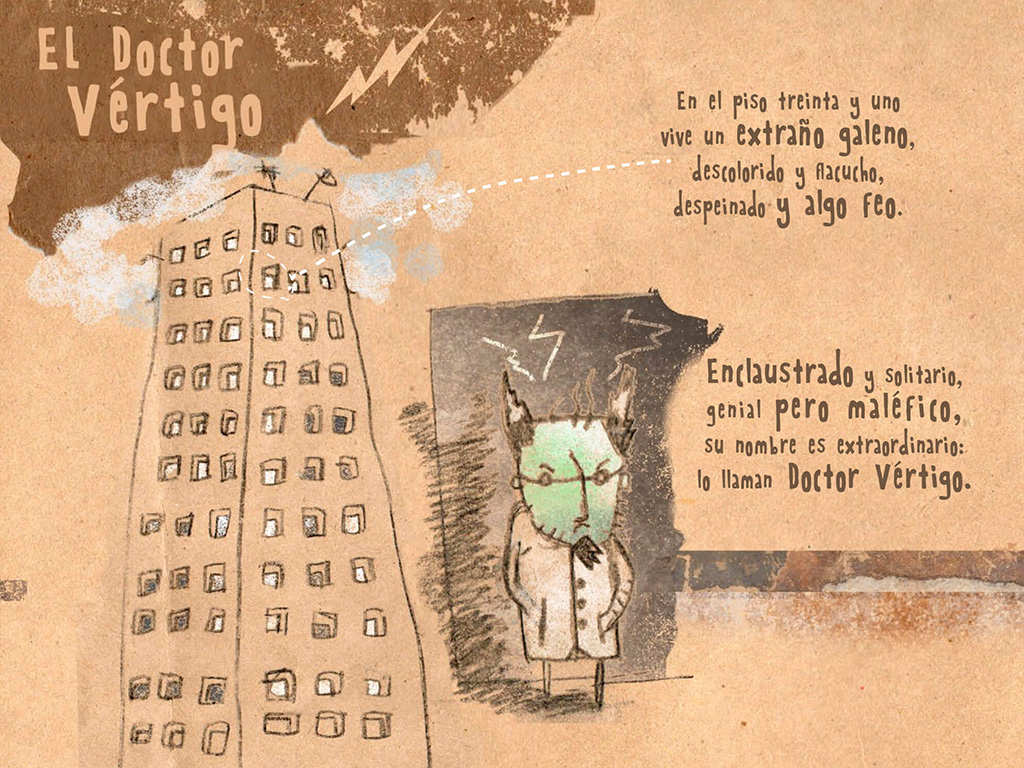 El Doctor
Vértigo
En el piso treinta y uno
vive un extraño galeno,
descolorido y flacucho,
despeinado y algo feo.
Enclaustrado y solitario,
genial pero maléfico,
su nombre es extraordinario:
lo llaman Doctor Vértigo.